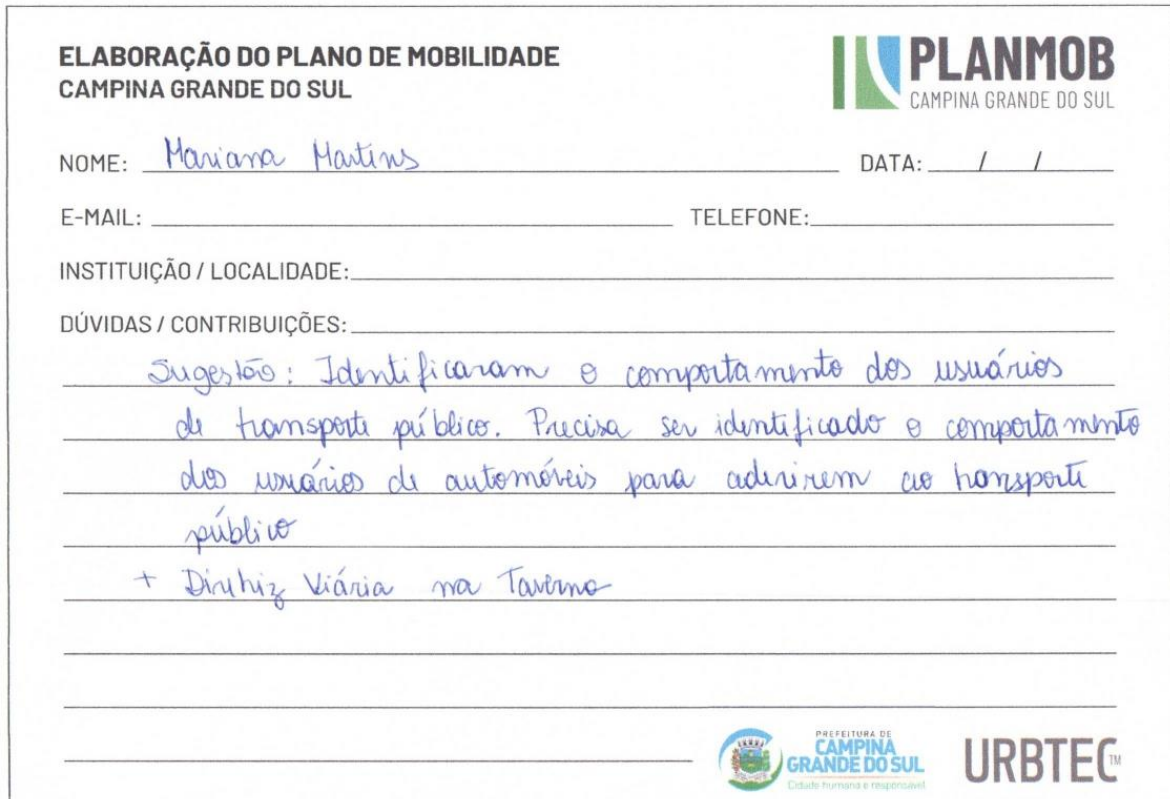 ELABORAÇÃO DO PLANO DE MOBILIDADE
CAMPINA GRANDE DO SUL
PLANMOB
CAMPINA GRANDE DO SUL
NOME: Mariana Martins DATA: / /
E-MAIL: TELEFONE:
INSTITUIÇÃO / LOCALIDADE:
DÚVIDAS / CONTRIBUIÇÕES:
Sugestão: Identificaram o comportamento dos usuários
de transporte público. Precisa ser identificado o comportamento
dos usuários de automóveis para aderirem ao transporte
público
+ Diretriz Viária na Taverno
PREFEITURA DE
CAMPINA
GRANDE DO SUL
Cidade humana e responsável
URBTEC™